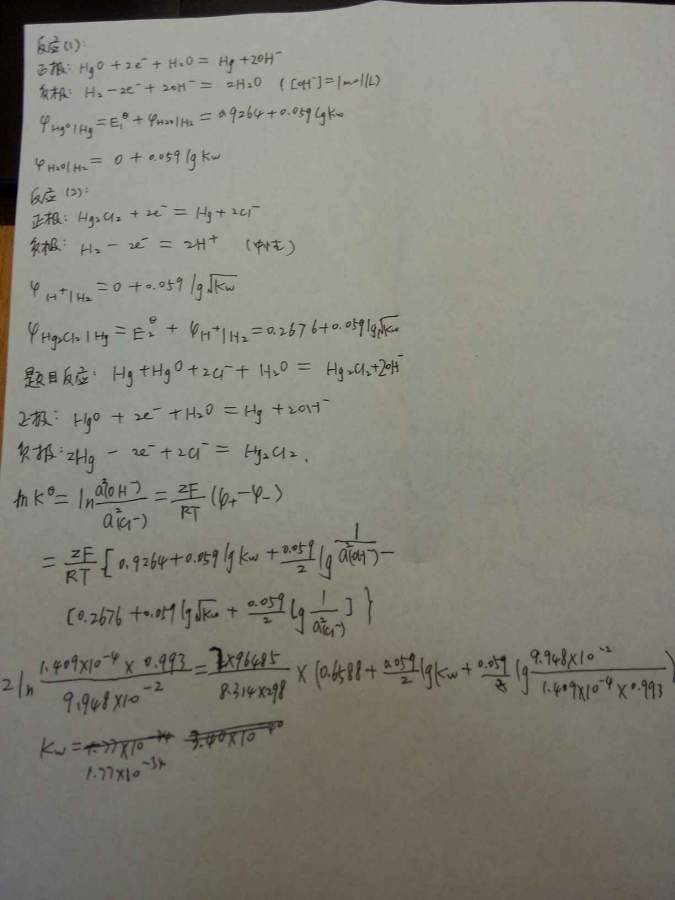 反应(1):
正极: HgO + 2e⁻ + H₂O = Hg + 2OH⁻
负极: H₂ - 2e⁻ + 2OH⁻ = 2H₂O ([OH⁻]=1mol/L)
φHgO|Hg = E₁^θ + φH₂O|H₂ = 0.9264 + 0.059 lgKw
φH₂O|H₂ = 0 + 0.059 lgKw
反应(2):
正极: Hg₂Cl₂ + 2e⁻ = Hg + 2Cl⁻
负极: H₂ - 2e⁻ = 2H⁺ (中性)
φH⁺|H₂ = 0 + 0.059 lg√Kw
φHg₂Cl₂|Hg = E₂^θ + φH⁺|H₂ = 0.2676 + 0.059lg√Kw
题目反应: Hg + HgO + 2Cl⁻ + H₂O = Hg₂Cl₂ + 2OH⁻
正极: HgO + 2e⁻ + H₂O = Hg + 2OH⁻
负极: 2Hg - 2e⁻ + 2Cl⁻ = Hg₂Cl₂.
lnK^θ = ln a²(OH⁻)/a²(Cl⁻) = ZF/RT (φ₊ - φ₋)
= ZF/RT {0.9264 + 0.059 lgKw + 0.059/2 lg 1/a²(OH⁻) -
[0.2676 + 0.059 lg√Kw + 0.059/2 lg 1/a²(Cl⁻)]}
2ln (1.409×10⁻⁴ × 0.993)/(9.948×10⁻²) = 2×96485/(8.314×298) × (0.6588 + 0.059/2 lgKw + 0.059/2 lg (9.948×10⁻²)/(1.409×10⁻⁴×0.993))
Kw =
1.77×10⁻³⁴